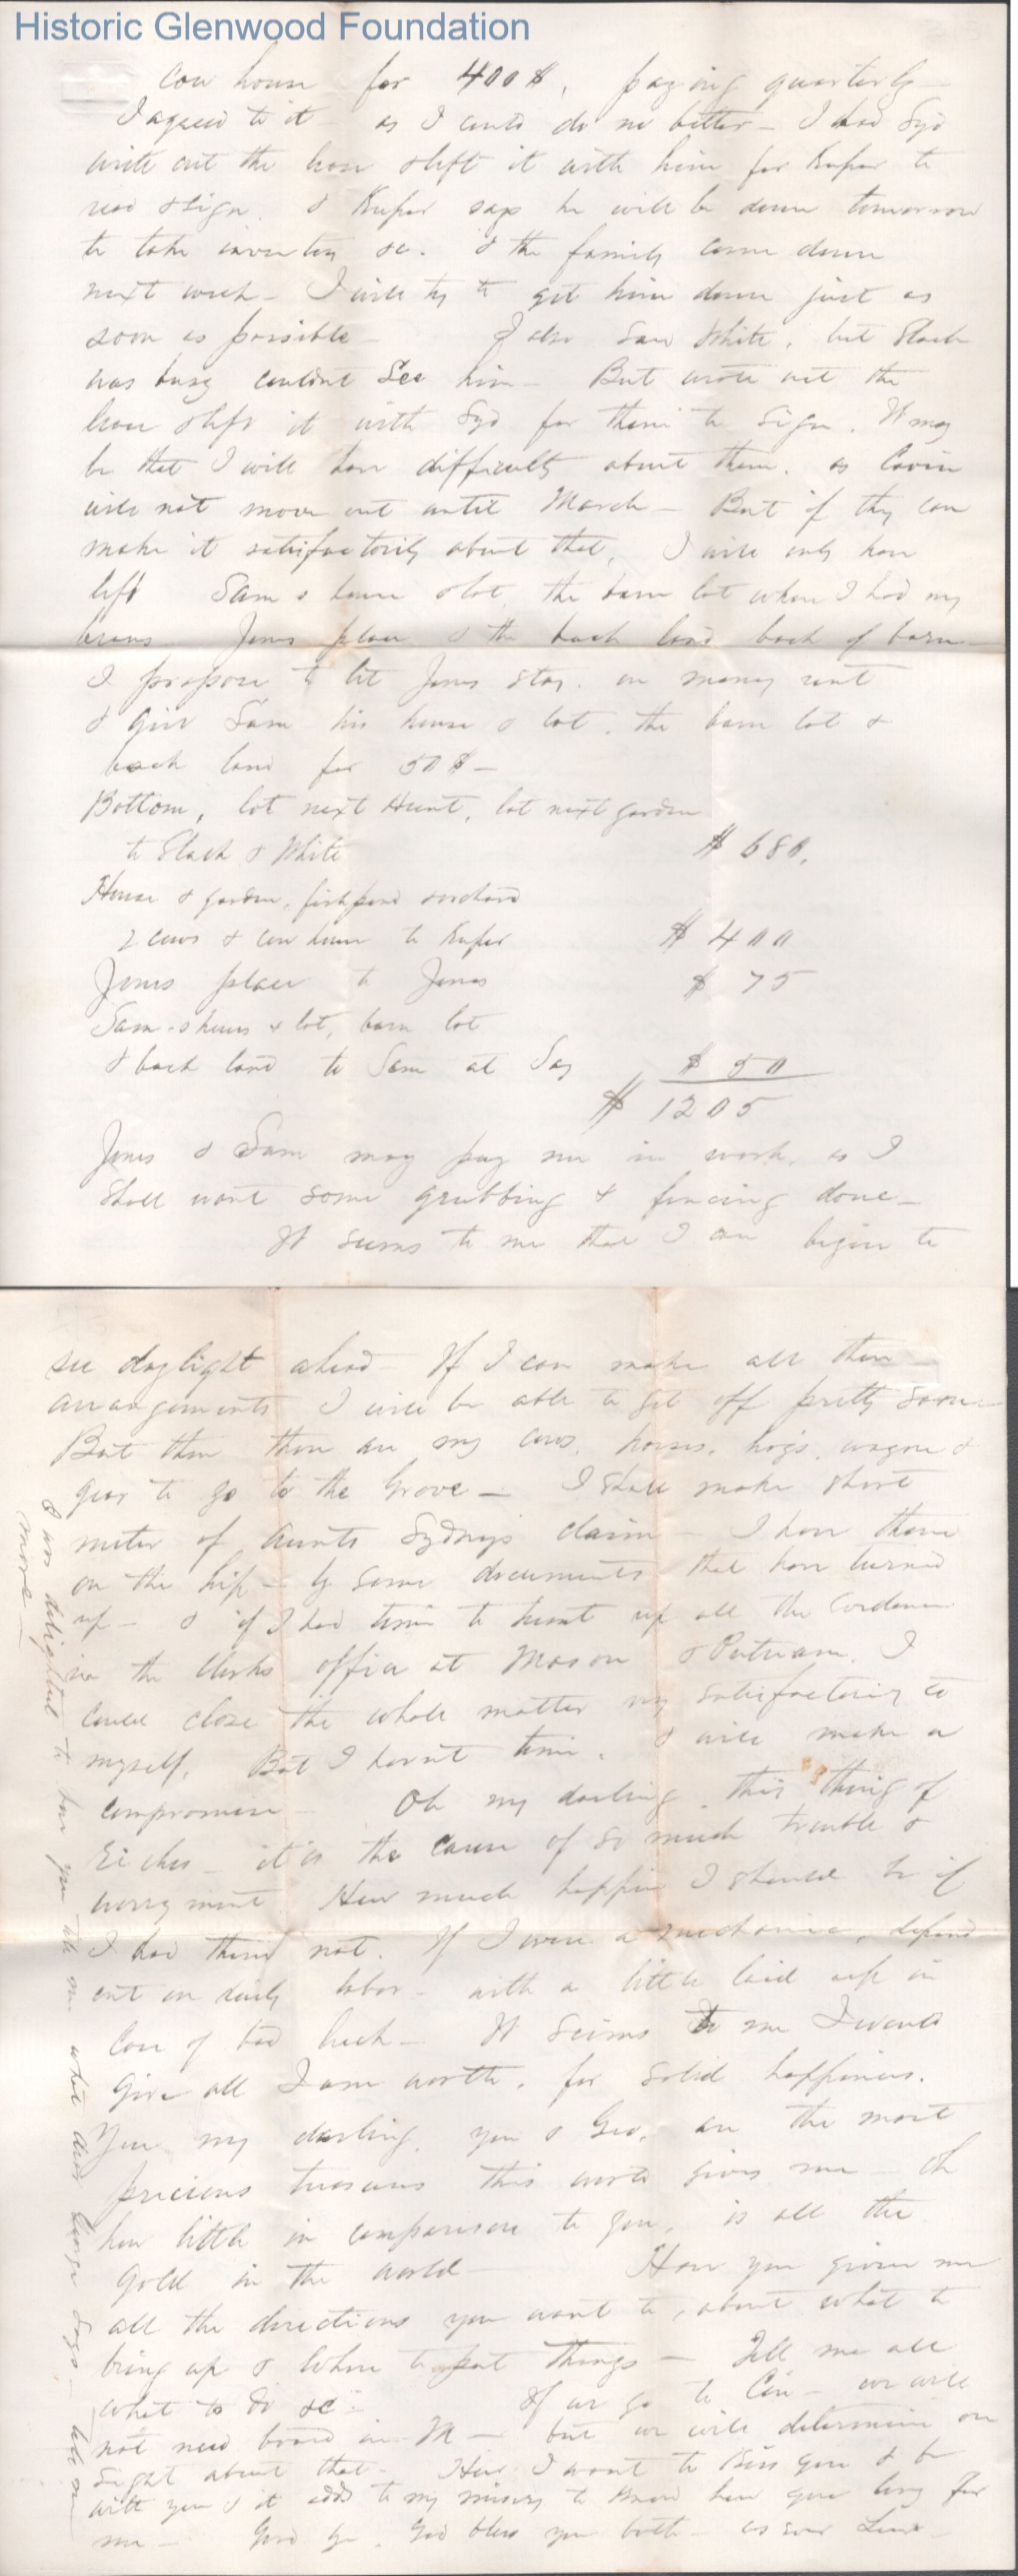 Historic Glenwood Foundation
Cow house for 400$, paying quarterly
I agreed to it as I could do no better - I had Syd
write out the lease & left it with him for Rufer to
read & sign. & Rufer says he will be down tomorrow
to take inventory &c. & the family come down
next week - I will try to get him down just as
soon as possible - I also saw White, but Slack
was busy couldnt see him - But wrote out the
lease & left it with Syd for them to sign. It may
be that I will have difficulty about them. as Cavin
will not move out until March - But if they can
make it satisfactorily about that, I will only have
left Sam's house & lot, the barn lot where I had my
beans Jones place & the back land back of barn
I propose to let Jones stay. on money rent
& give Sam his house & lot. the barn lot &
back land for 50$ -
Bottom, lot next Hunt, lot next garden
to Slack & White $ 680.
House & garden, fishpond orchard
2 cows & cow house to Rufer $ 400
Jones place to Jones $ 75
Sam's house & lot, barn lot
& back land to Sam at say $ 50
$ 1205
Jones & Sam may pay me in work, as I
shall want some grubbing & fencing done -
It seems to me that I can begin to
see daylight ahead - If I can make all these
arrangements I will be able to get off pretty soon -
But then there are my cows, horses, hogs, wagons &
gear to go to the Grove - I shall make short
meter of Aunts Sydneys claim - I have them
on the hip - by some documents that have turned
up - & if I had time to hunt up all the evidence
in the Clerks office at Mason & Putnam, I
could close the whole matter up satisfactorily to
myself. But I havn't time. & will make a
compromise - Oh my darling this thing of
Riches - it is the cause of so much trouble &
worryment How much happier I should be if
I had them not. If I were a mechanic, depend
ent on daily labor - with a little laid up in
case of bad luck - It seems to me I would
give all I am worth, for solid happiness.
You my darling, you & Geo, are the most
precious treasures this world gives me - Oh
how little in comparison to you, is all the
Gold in the world - Have you given me
all the directions you want to, about what to
bring up & where to put things - Tell me all
what to do &c - If we go to Cin - we will
not need board in M - but we will determine on
sight about that - How I want to kiss you & be
with you & it adds to my misery to know how you long for
me - Good bye. God bless you both - as ever
I am delighted to have you tell me what dear George says - tell me
more -